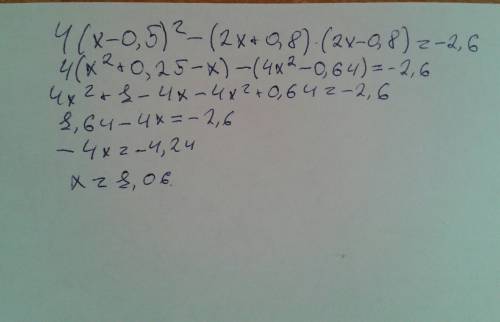 4(x-0,5)²-(2x+0,8)·(2x-0,8)=-2,6
4(x²+0,25-x)-(4x²-0,64)=-2,6
4x²+1-4x-4x²+0,64=-2,6
1,64-4x=-2,6
-4x=-4,24
x=1,06.